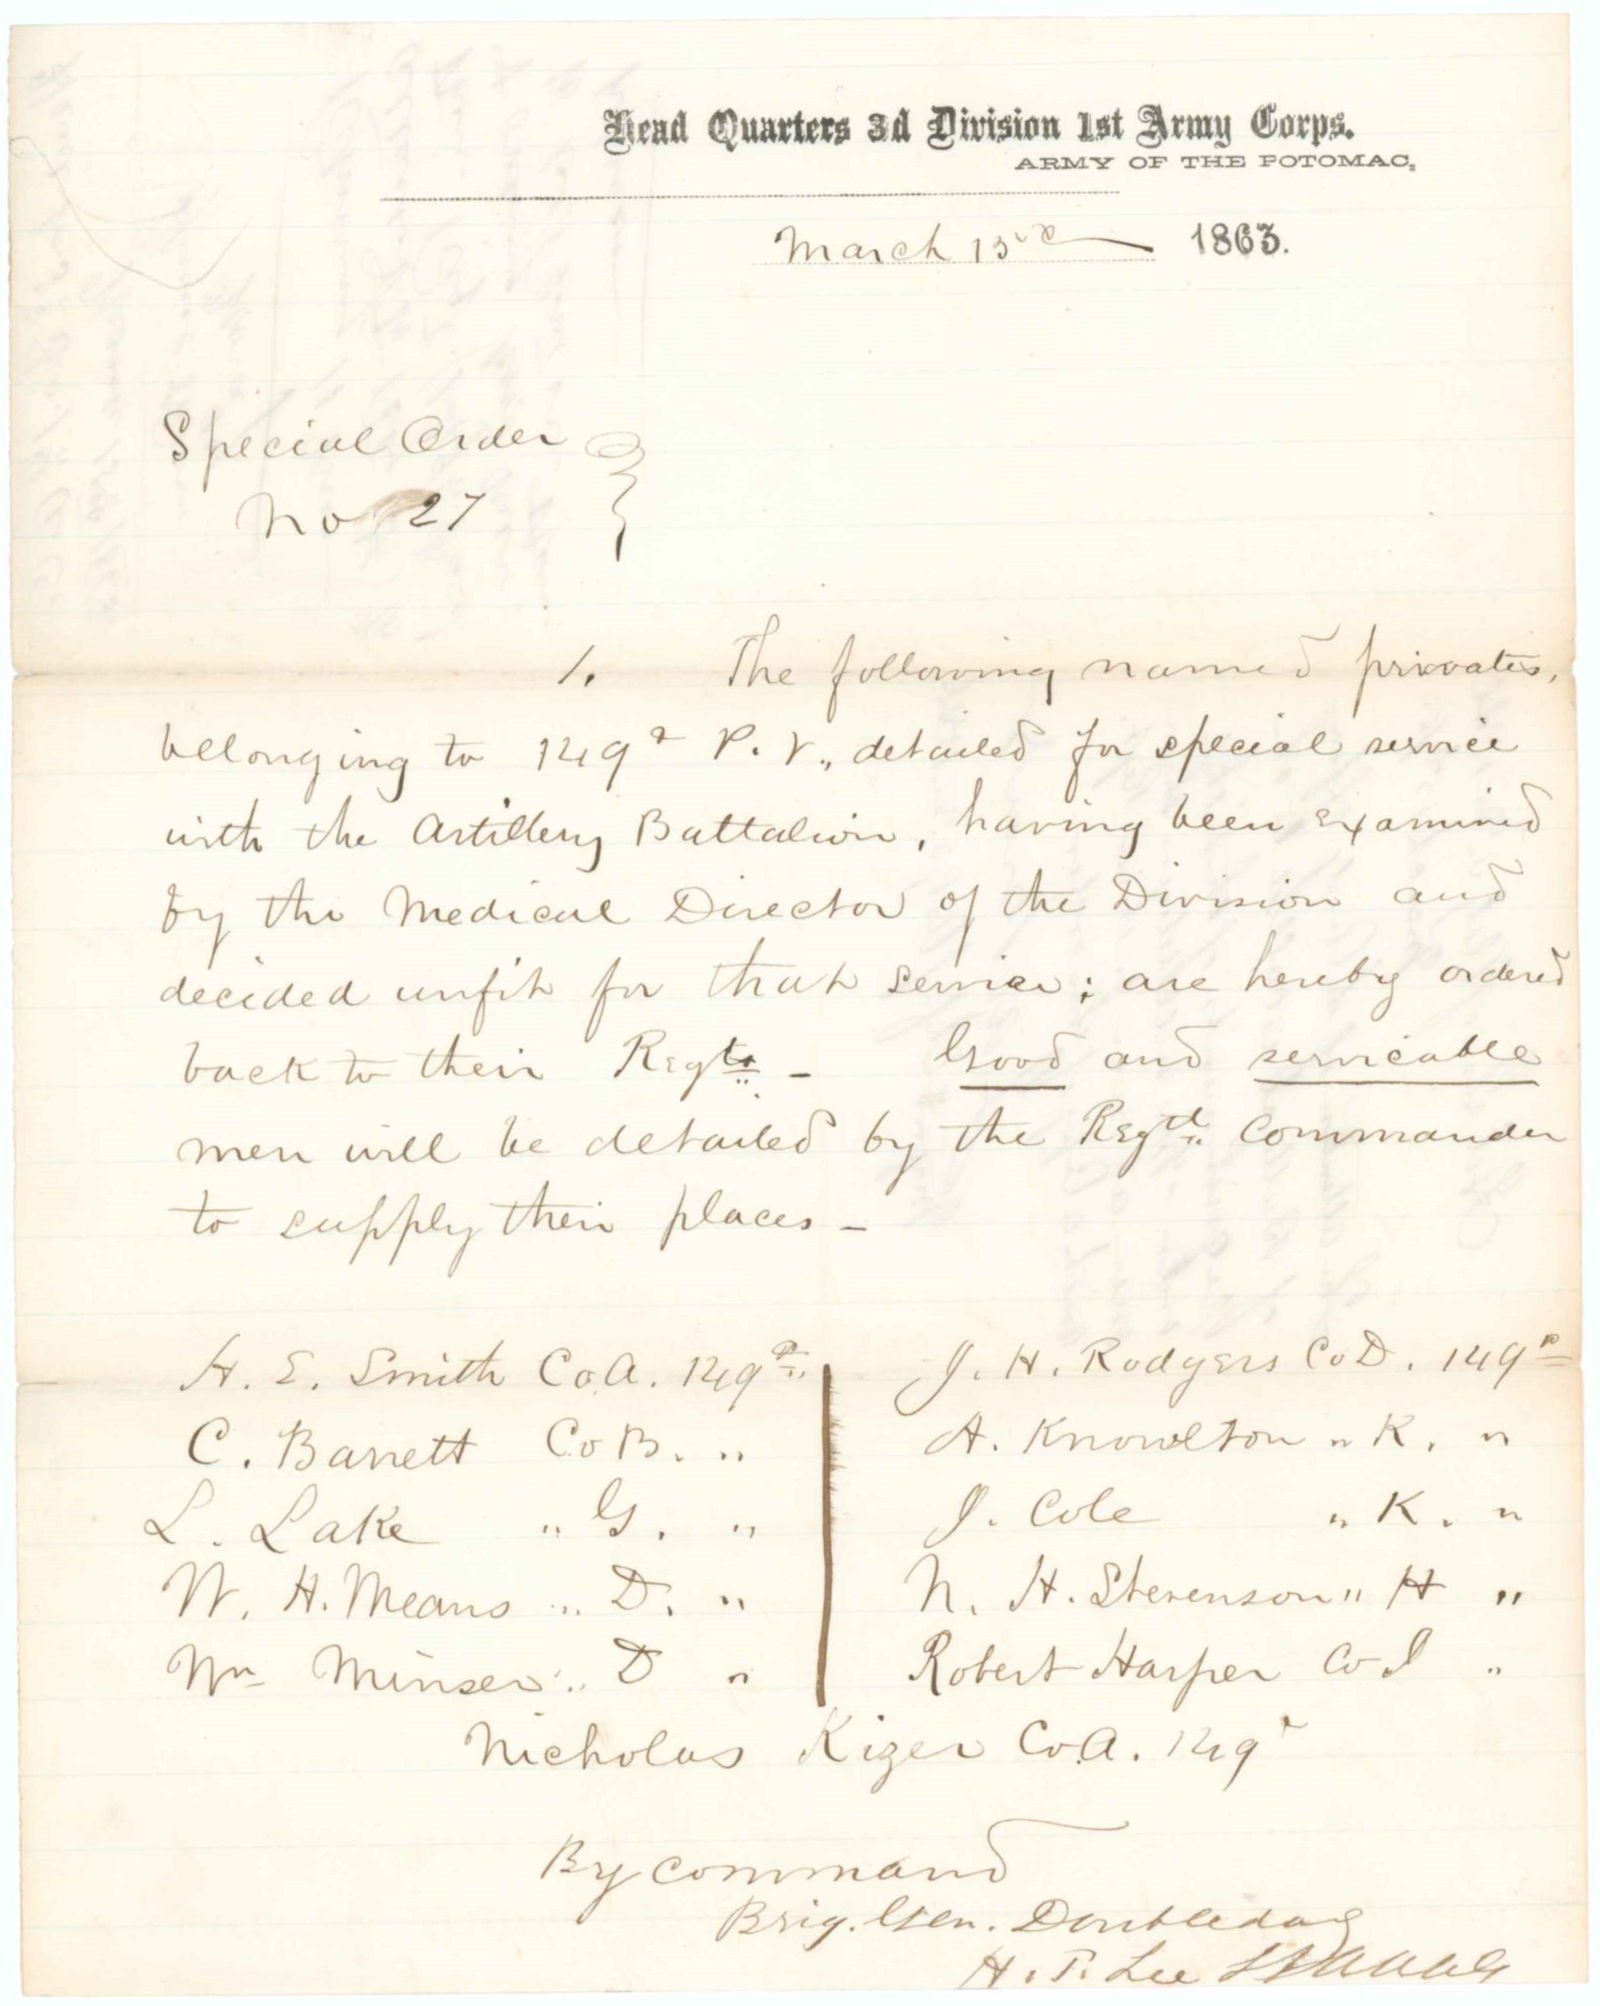 Head Quarters 3d Division 1st Army Corps.
ARMY OF THE POTOMAC,
March 13 1863.
Special Order
No 27
1. The following named privates,
belonging to 149th P. V., detailed for special service
with the Artillery Battalion, having been examined
by the Medical Director of the Division and
decided unfit for that service; are hereby ordered
back to their Regts. –
Good and servicable
men will be detailed by the Regtl. Commander
to supply their places –
H. E. Smith Co A. 149th
J. H. Rodgers Co D. 149th
C. Barrett Co B. "
A. Knowlton " K. "
L. Lake " G. "
J. Cole " K. "
W. H. Means " D. "
N. H. Stevenson " H "
Wm Minser " D "
Robert Harper Co I "
Nicholas Kizer Co A. 149th
By command
Brig. Gen. Doubleday
H. T. Lee